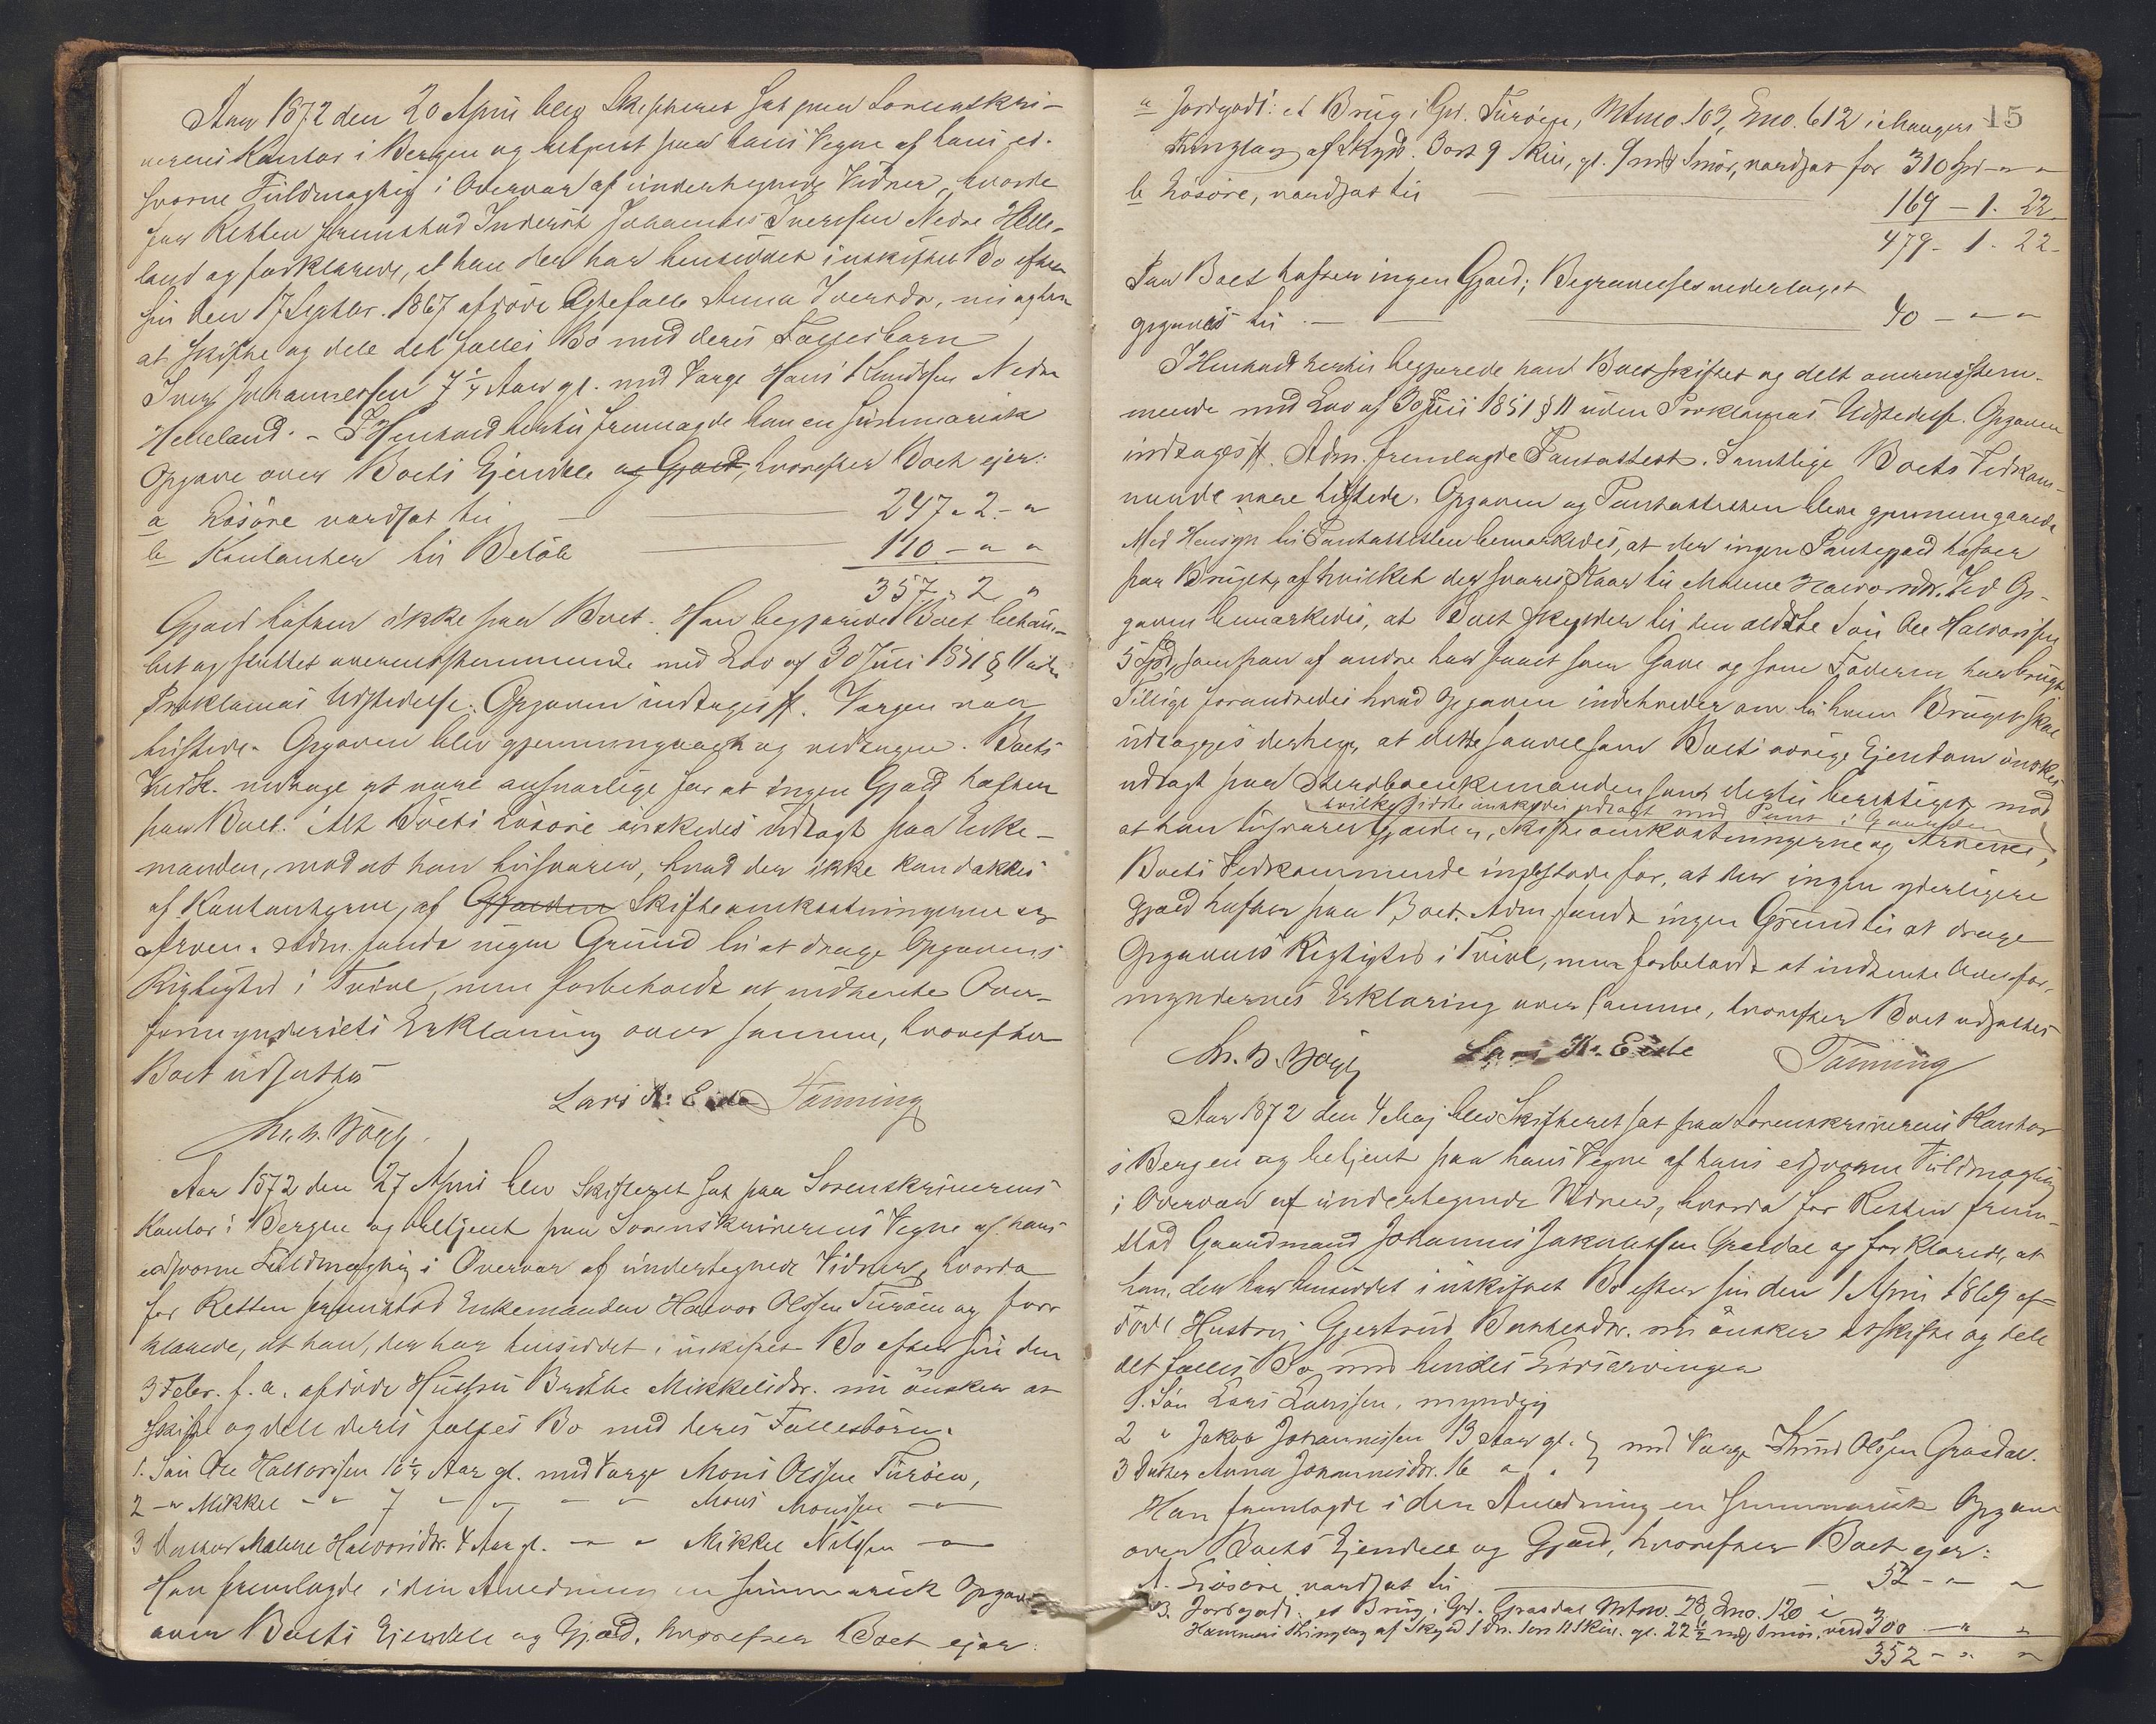 Aar 1872 den 20 April blev Skifteret sat paa Sorenskri-
verens Kontor i Bergen og betjent paa hans Vegne af hans ed-
svorne Fuldmægtig i Overvær af undertegnede Vidner, hvorda
for Retten fremstod Inderst Johannes Iversen Nedre Helle-
land og forklarede, at han der har hensiddet i uskiftet Bo efter
sin den 17 Septbr. 1867 afdöde Ægtefælle Anna Iversdr, nu agter
at skifte og dele det fælles Bo med deres Fællesbarn
Iver Johannessen 7 1/4 Aar gl. med Værge Hans Knudsen Nedre
Helleland. - I Henhold hertil fremlagde han en summarisk
Opgave over Boets Ejendele og Gjæld, hvorefter Boet ejer:
a Lösöre værdsat til 247 " 2 - "
b Kontanter til Belöb 110 - " "
357 " 2 "
Gjæld hefter ikke paa Boet. Han begjærede Boet behand-
let og sluttet overensstemmende med Lov af 30 Juni 1851 § 11 uden
Proklamas Udstedelse. Opgaven indtages ff. Værgen var
tilstede. Opgaven blev gjennemgaaet og vedtagen. Boets
Vedk. vedtage at være ansvarlige for at ingen Gjæld hefter
paa Boet. Alt Boets Lösöre önskedes udlagt paa Enke-
manden, mod at han tilsvarer, hvad der ikke kan dækkes
af Kontanterne, af Gjælden Skifteomkostningerne og
Arven. Adm. fandt ingen Grund til at drage Opgavens
Rigtighed i Tvivl, men forbeholdt at indhente Over-
formynderiets Erklæring over samme, hvorefter
Boet udsattes
Lars K. Eide Tönning
Aar 1872 den 27 April blev Skifteret sat paa Sorenskriverens
Kontor i Bergen og betjent paa Sorenskriverens Vegne af hans
edsvorne Fuldmægtig i Overvær af undertegnede Vidner, hvorda
for Retten fremstod Enkemanden Halvor Olssen Turöen og for-
klarede, at han, der har hensiddet i uskiftet Bo efter sin den
3 Febr. f. a. afdöde Hustru Brithe Mikkelsdr. nu önsker at
skifte og dele deres fælles Bo med deres Fællesbörn.
1. Sön Ole Halvorssen 10 1/2 Aar gl. med Værge Mons Olssen Turöen,
2 - " Mikkel - " 7 - " - " - " Mons Monssen - " -
3 Datter Malene Halvorsdr. 4 Aar gl. - " - " Mikkel Nilssen - " -
Han fremlagde i den Anledning en summarisk Opgave
over Boets Ejendele og Gjæld, hvorefter Boet ejer:
15
a Jordgods: et Brug i Grd. Turöen, Mtno. 103, Lno. 612 i Mangers
Thinglag af Skyld. 3 ort 9 Skill, gl. 9 mrk Smör, værdsat for 310 Spd - " "
b Lösöre, værdsat til 169 - 1. 22
479 - 1. 22 -
Paa Boet hefter ingen Gjæld; Begravelsesvederlaget
opgaves til 40 - " - "
I Henhold hertil begjærede han Boet skiftet og delt overensstem-
mende med Lov af 30 Juni 1851 § 11 uden Proklamas Udstedelse. Opgaven
indtages ff. Adm. fremlagde Panteattest. Samtlige Boets Vedkom-
mende vare tilstede. Opgaven og Panteattesten bleve gjennemgaaede
Med Hensyn til Panteattesten bemærkedes, at der ingen Pantegjæld hefter
paa Bruget, af hvilket der svares Kaar til Malene Halvorsdr. Ved Op-
gaven bemærkedes, at Boet skylder til den ældste Sön Ole Halvorssen
5 Spd, som han af andre har faaet som Gave og som Faderen har brugt
Tillige forandredes hvad Opgaven indeholder om til hvem Bruget skal
udlægges derhen, at dette saavelsom Boets övrige Ejendom önskes
udlagt paa Sterboenkemanden som dertil berettiget, mod
hvilke sidste önskedes udlagt med Pant i Gaarden
at han tilsvarer Gjælden, Skifteomkostningerne og Arvene,
Boets Vedkommende indestode for, at der ingen yderligere
Gjæld hefter paa Boet. Adm. fandt ingen Grund til at drage
Opgavens Rigtighed i Tvivl, men forbeholdt at indhente Overfor-
myndernes Erklæring over samme, hvorefter Boet udsattes
Lars K. Eide Tönning
Aar 1872 den 4 Maj blev Skifteret sat paa Sorenskriverens Kontor
i Bergen og betjent paa hans Vegne af hans edsvorne Fuldmægtig
i Overvær af undertegnede Vidner, hvorda for Retten frem-
stod Gaardmand Johannes Jakobsen Grasdal og forklarede, at
han, der har hensiddet i uskiftet Bo efter sin den 1 April 1869 af-
döde Hustru Gjertrud Bentsdr. nu önsker at skifte og dele
det fælles Bo med hendes Livsarvinger
1. Sön Lars Larssen, myndig
2 " Jakob Johannessen 13 Aar gl. } med Værge Knud Olssen Grasdal.
3 Datter Anna Johannesdr. 16 " "
Han fremlagde i den Anledning en summarisk Opgave
over Boets Ejendele og Gjæld, hvorefter Boet ejer:
A. Lösöre værdsat til 52 - " "
B. Jordgods: et Brug i Grd. Grasdal Mtno. 28, Lno. 120 i
Hammers Thinglag af Skyld 1 Dlr. 1 ort 11 Skill. gl. 22 1/2 mrk Smör, værd 300 - " "
352 - " "